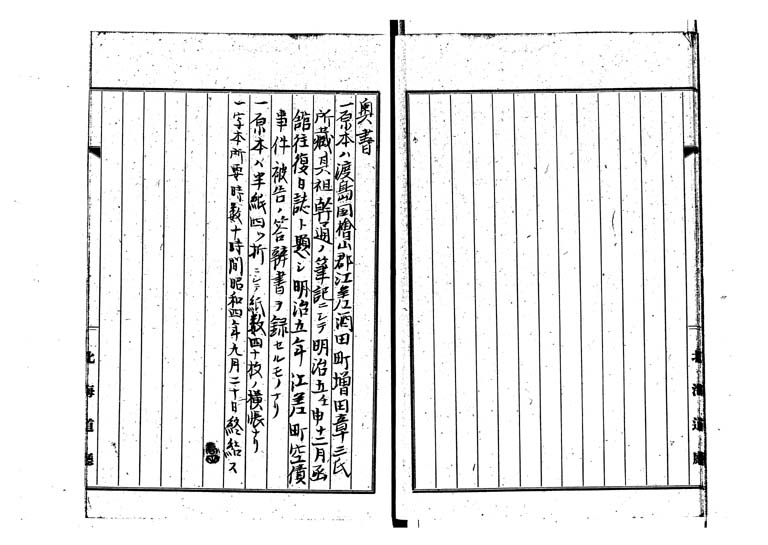 奥書
一原本ハ渡島国檜山郡江差酒田町増田章三氏
所蔵其祖幹通ノ筆記ニシテ明治五壬申十二月函
館往復日誌ト題シ明治五年江差町空債
事件被告ノ答辯書ヲ録セルモノナリ
一原本ハ半紙四ツ折ニシテ紙数四十枚ノ横帳ナリ
一字本所要時数十時間昭和四年九月二十日終結ス
北海道廳
北海道廳